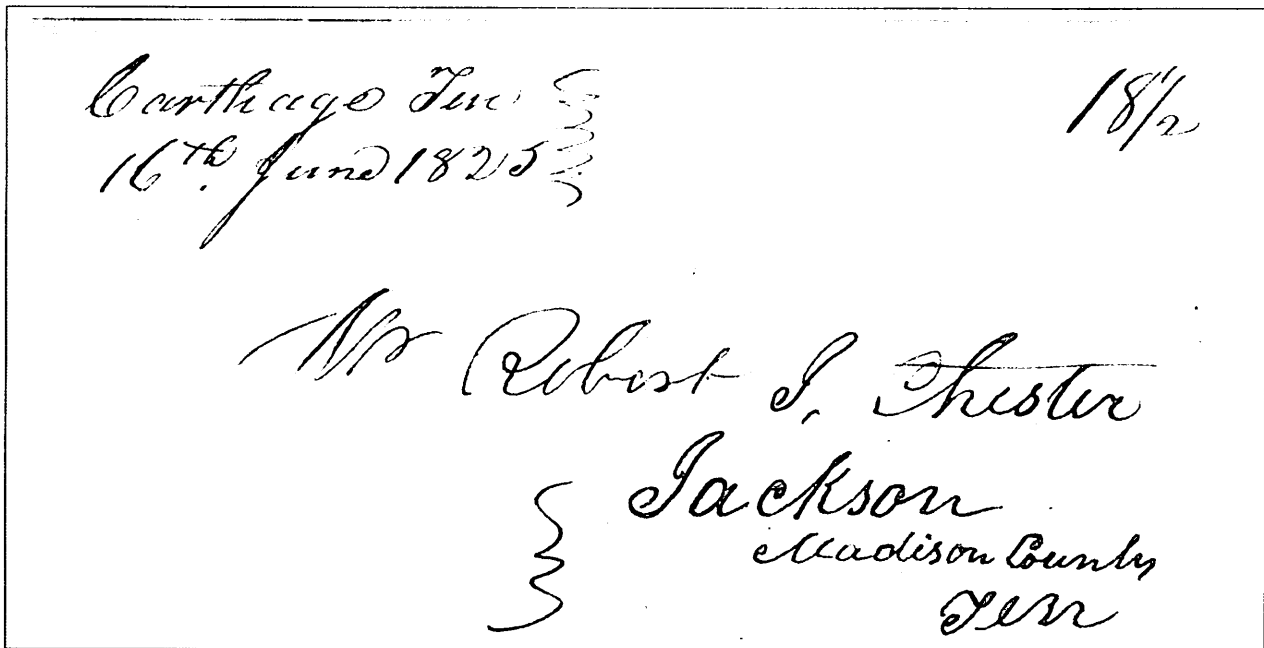 Carthage Ten
18 1/2
16th. June 1825
Mr Robert I. Chester
Jackson
Madison County
Tenn